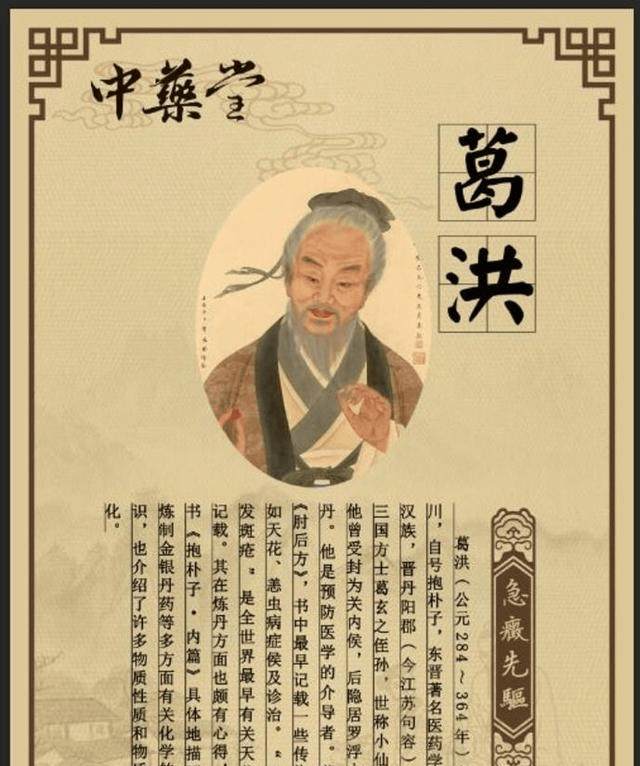 中藥堂
葛洪
急癥先驅
葛洪（公元284～364年）
川，自号抱朴子，东晋著名医药学
汉族，晋丹阳郡（今江苏句容）
三国方士葛玄之侄孙，世称小仙
他曾受封为关内侯，后隐居罗浮
丹。他是预防医学的介导者。
《肘后方》，书中最早记载一些传
如天花、恙虫病症侯及诊治。“
发斑疮”是全世界最早有关天
记载。其在炼丹方面也颇有心得，
书《抱朴子·内篇》具体地描
炼制金银丹药等多方面有关化学
识，也介绍了许多物质性质和物
化。